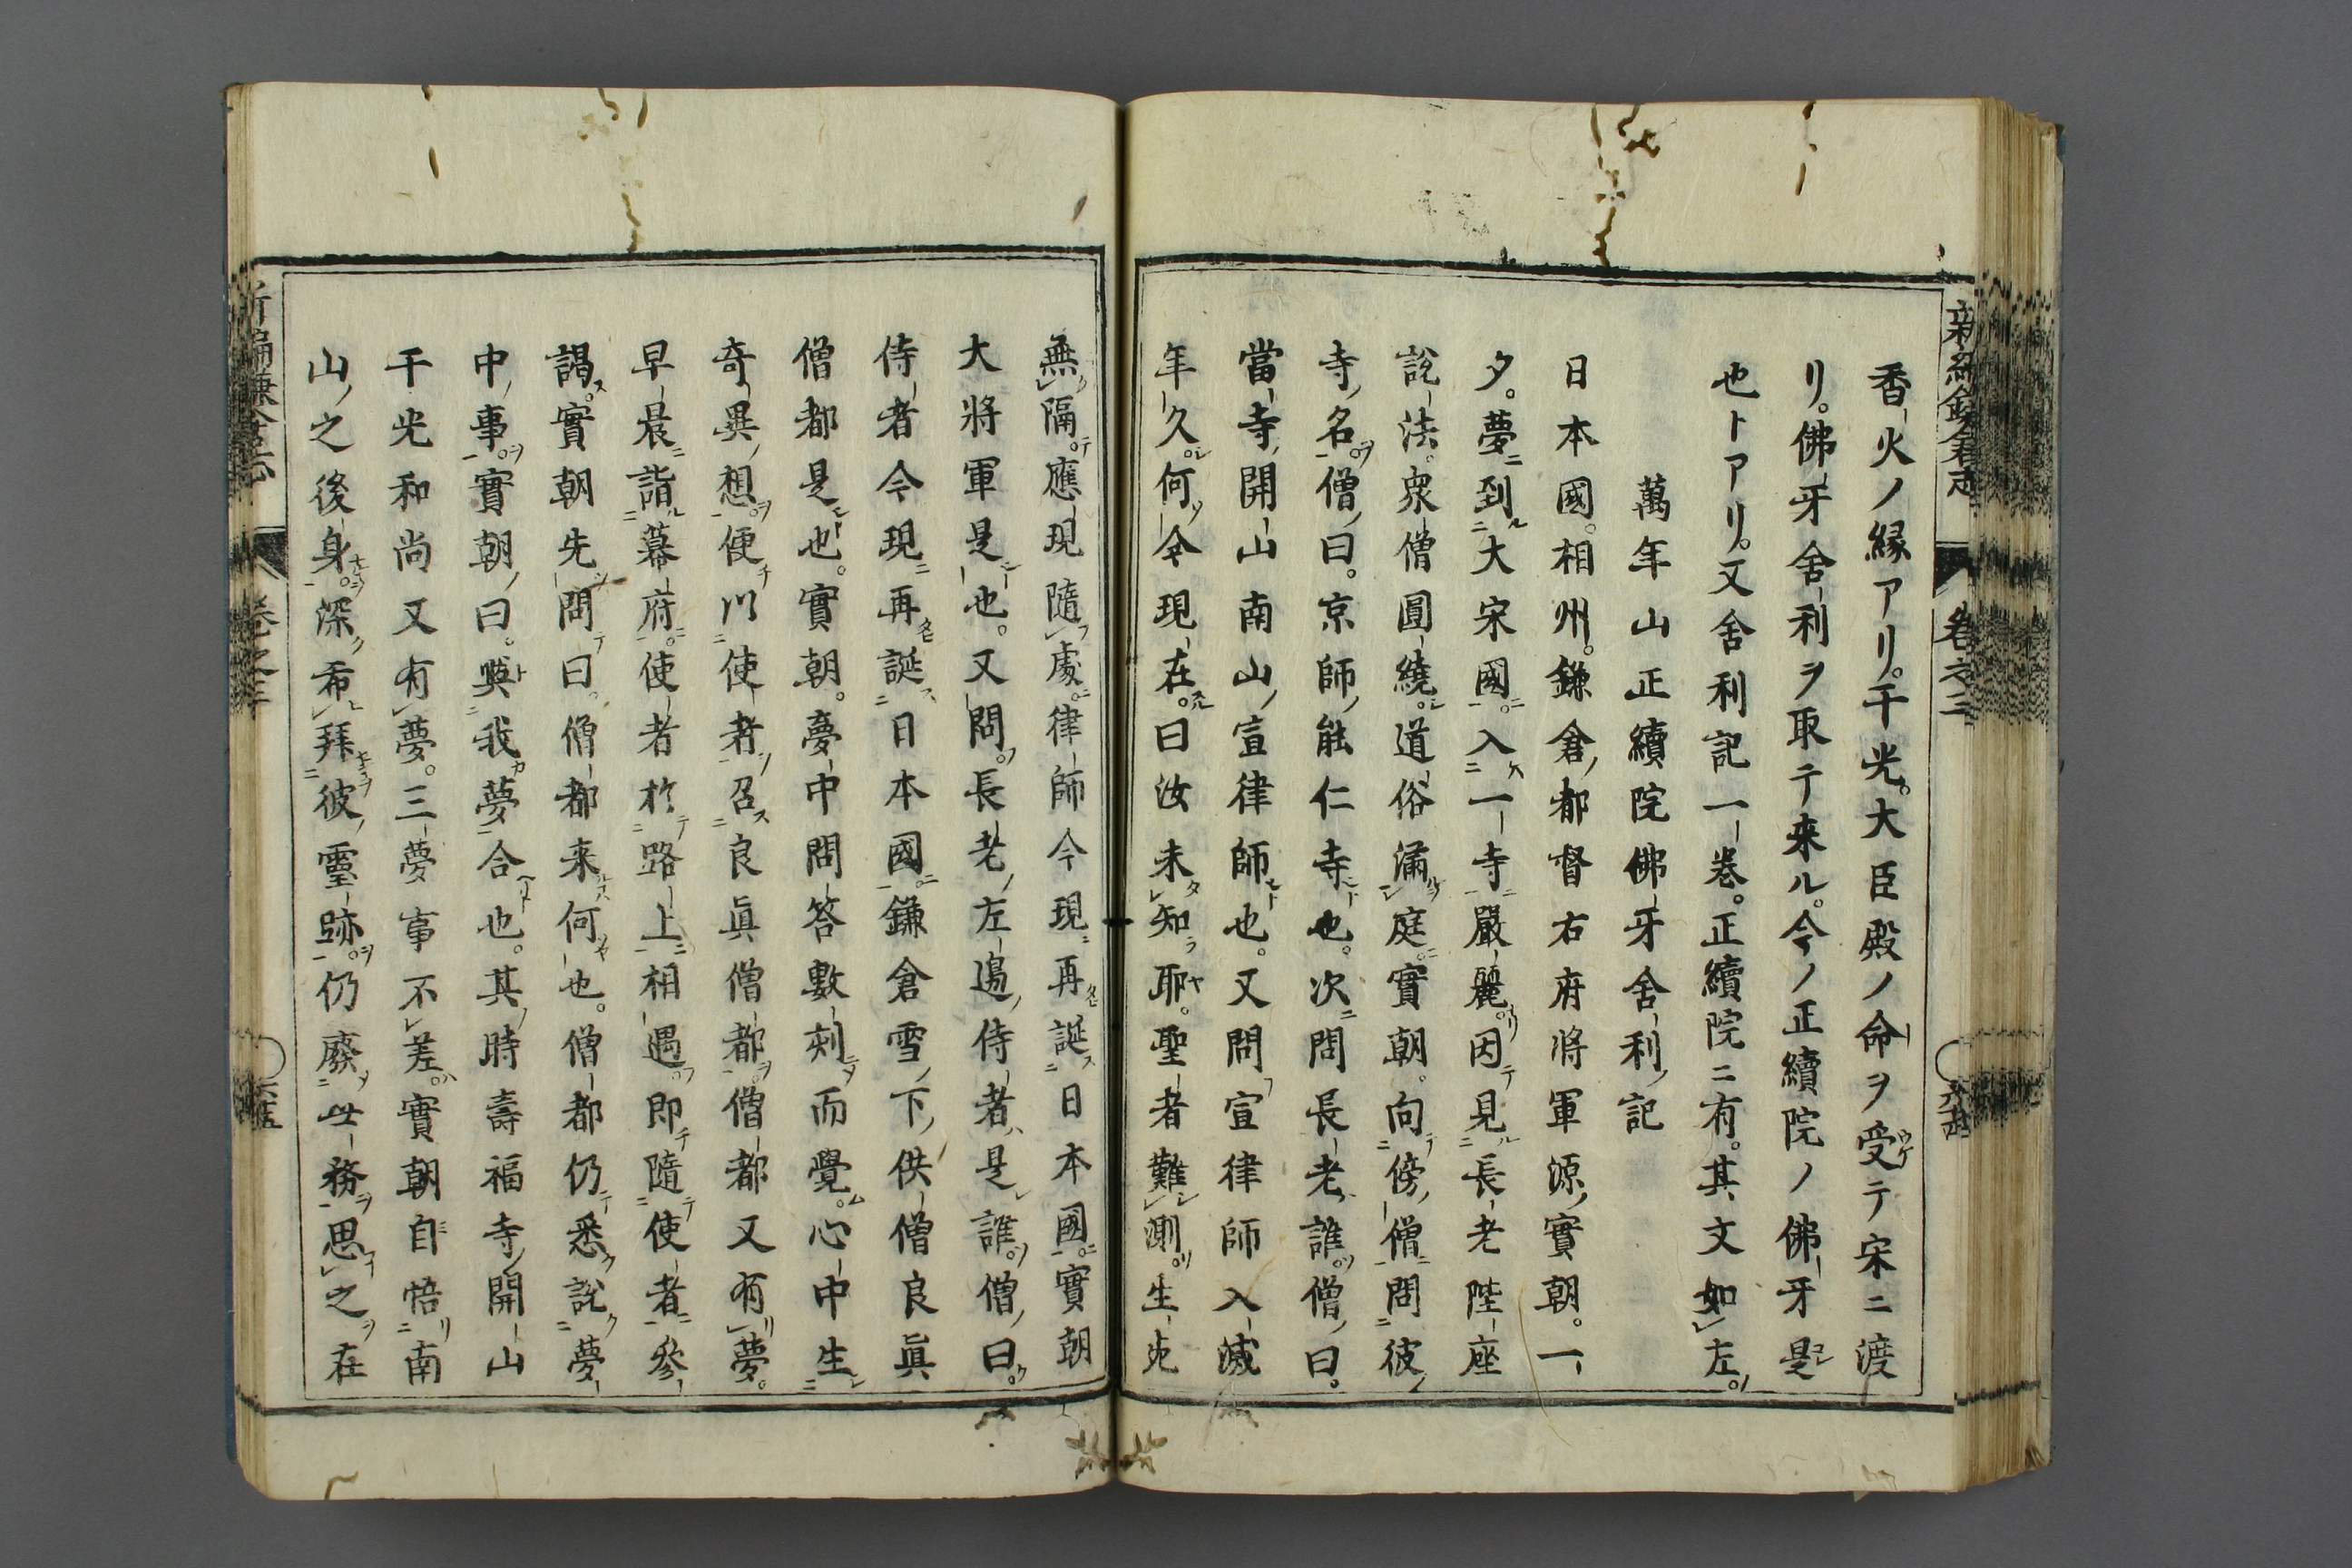 新編鎌倉志 卷之三
香火ノ縁アリ。千光。大臣殿ノ命ヲ受テ宋ニ渡
リ。佛牙舍利ヲ取テ来ル。今ノ正續院ノ佛牙是
也トアリ。又舍利記一卷。正續院ニ有。其文如左。
萬年山正續院佛牙舍利記
日本國。相州。鎌倉都督右府將軍源實朝。一
夕。夢到大宋國。入一寺嚴麗。因見長老陞座
說法。衆僧圓繞。道俗滿庭。實朝。向傍僧問彼
寺名。僧曰。京師能仁寺也。次問長老誰。僧曰。
當寺開山南山宣律師也。又問宣律師入滅
年久。何今現在。曰汝未知耶。聖者難測。生死
無隔。應現隨處。律師今現再誕日本國。實朝
大將軍是也。又問。長老左邊侍者是誰。僧曰。
侍者今現再誕日本國。鎌倉雪下供僧良眞
僧都是也。實朝。夢中問答數刻而覺。心中生
奇異想。便以使者召良眞僧都。僧都又有夢。
早晨詣幕府。使者於路上相遇。即隨使者參
謁。實朝先問曰。僧都来何也。僧都仍悉說夢
中事。實朝曰。與我夢合也。其時壽福寺開山
千光和尚又有夢。三夢事不差。實朝自悟南
山之後身。深希拜彼靈跡。仍廢世務思之在
新編鎌倉志 卷之三